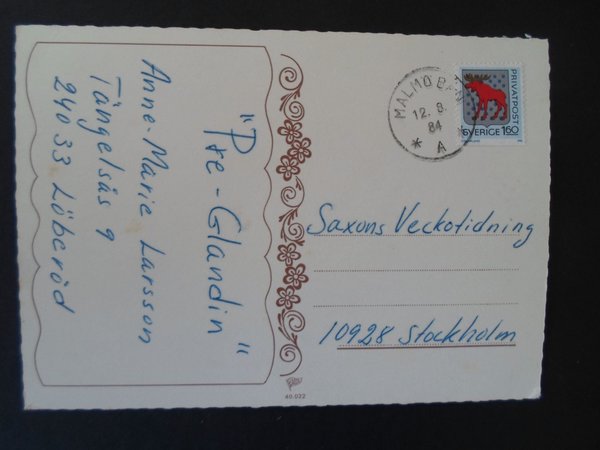 "Pre-Glandin"
Anne-Marie Larsson
Tångelsås 9
240 33 Löberöd
MALMÖ BAN
12. 8.
84
* A
PRIVATPOST
SVERIGE 160
Saxons Veckotidning
10928 Stockholm
40.022